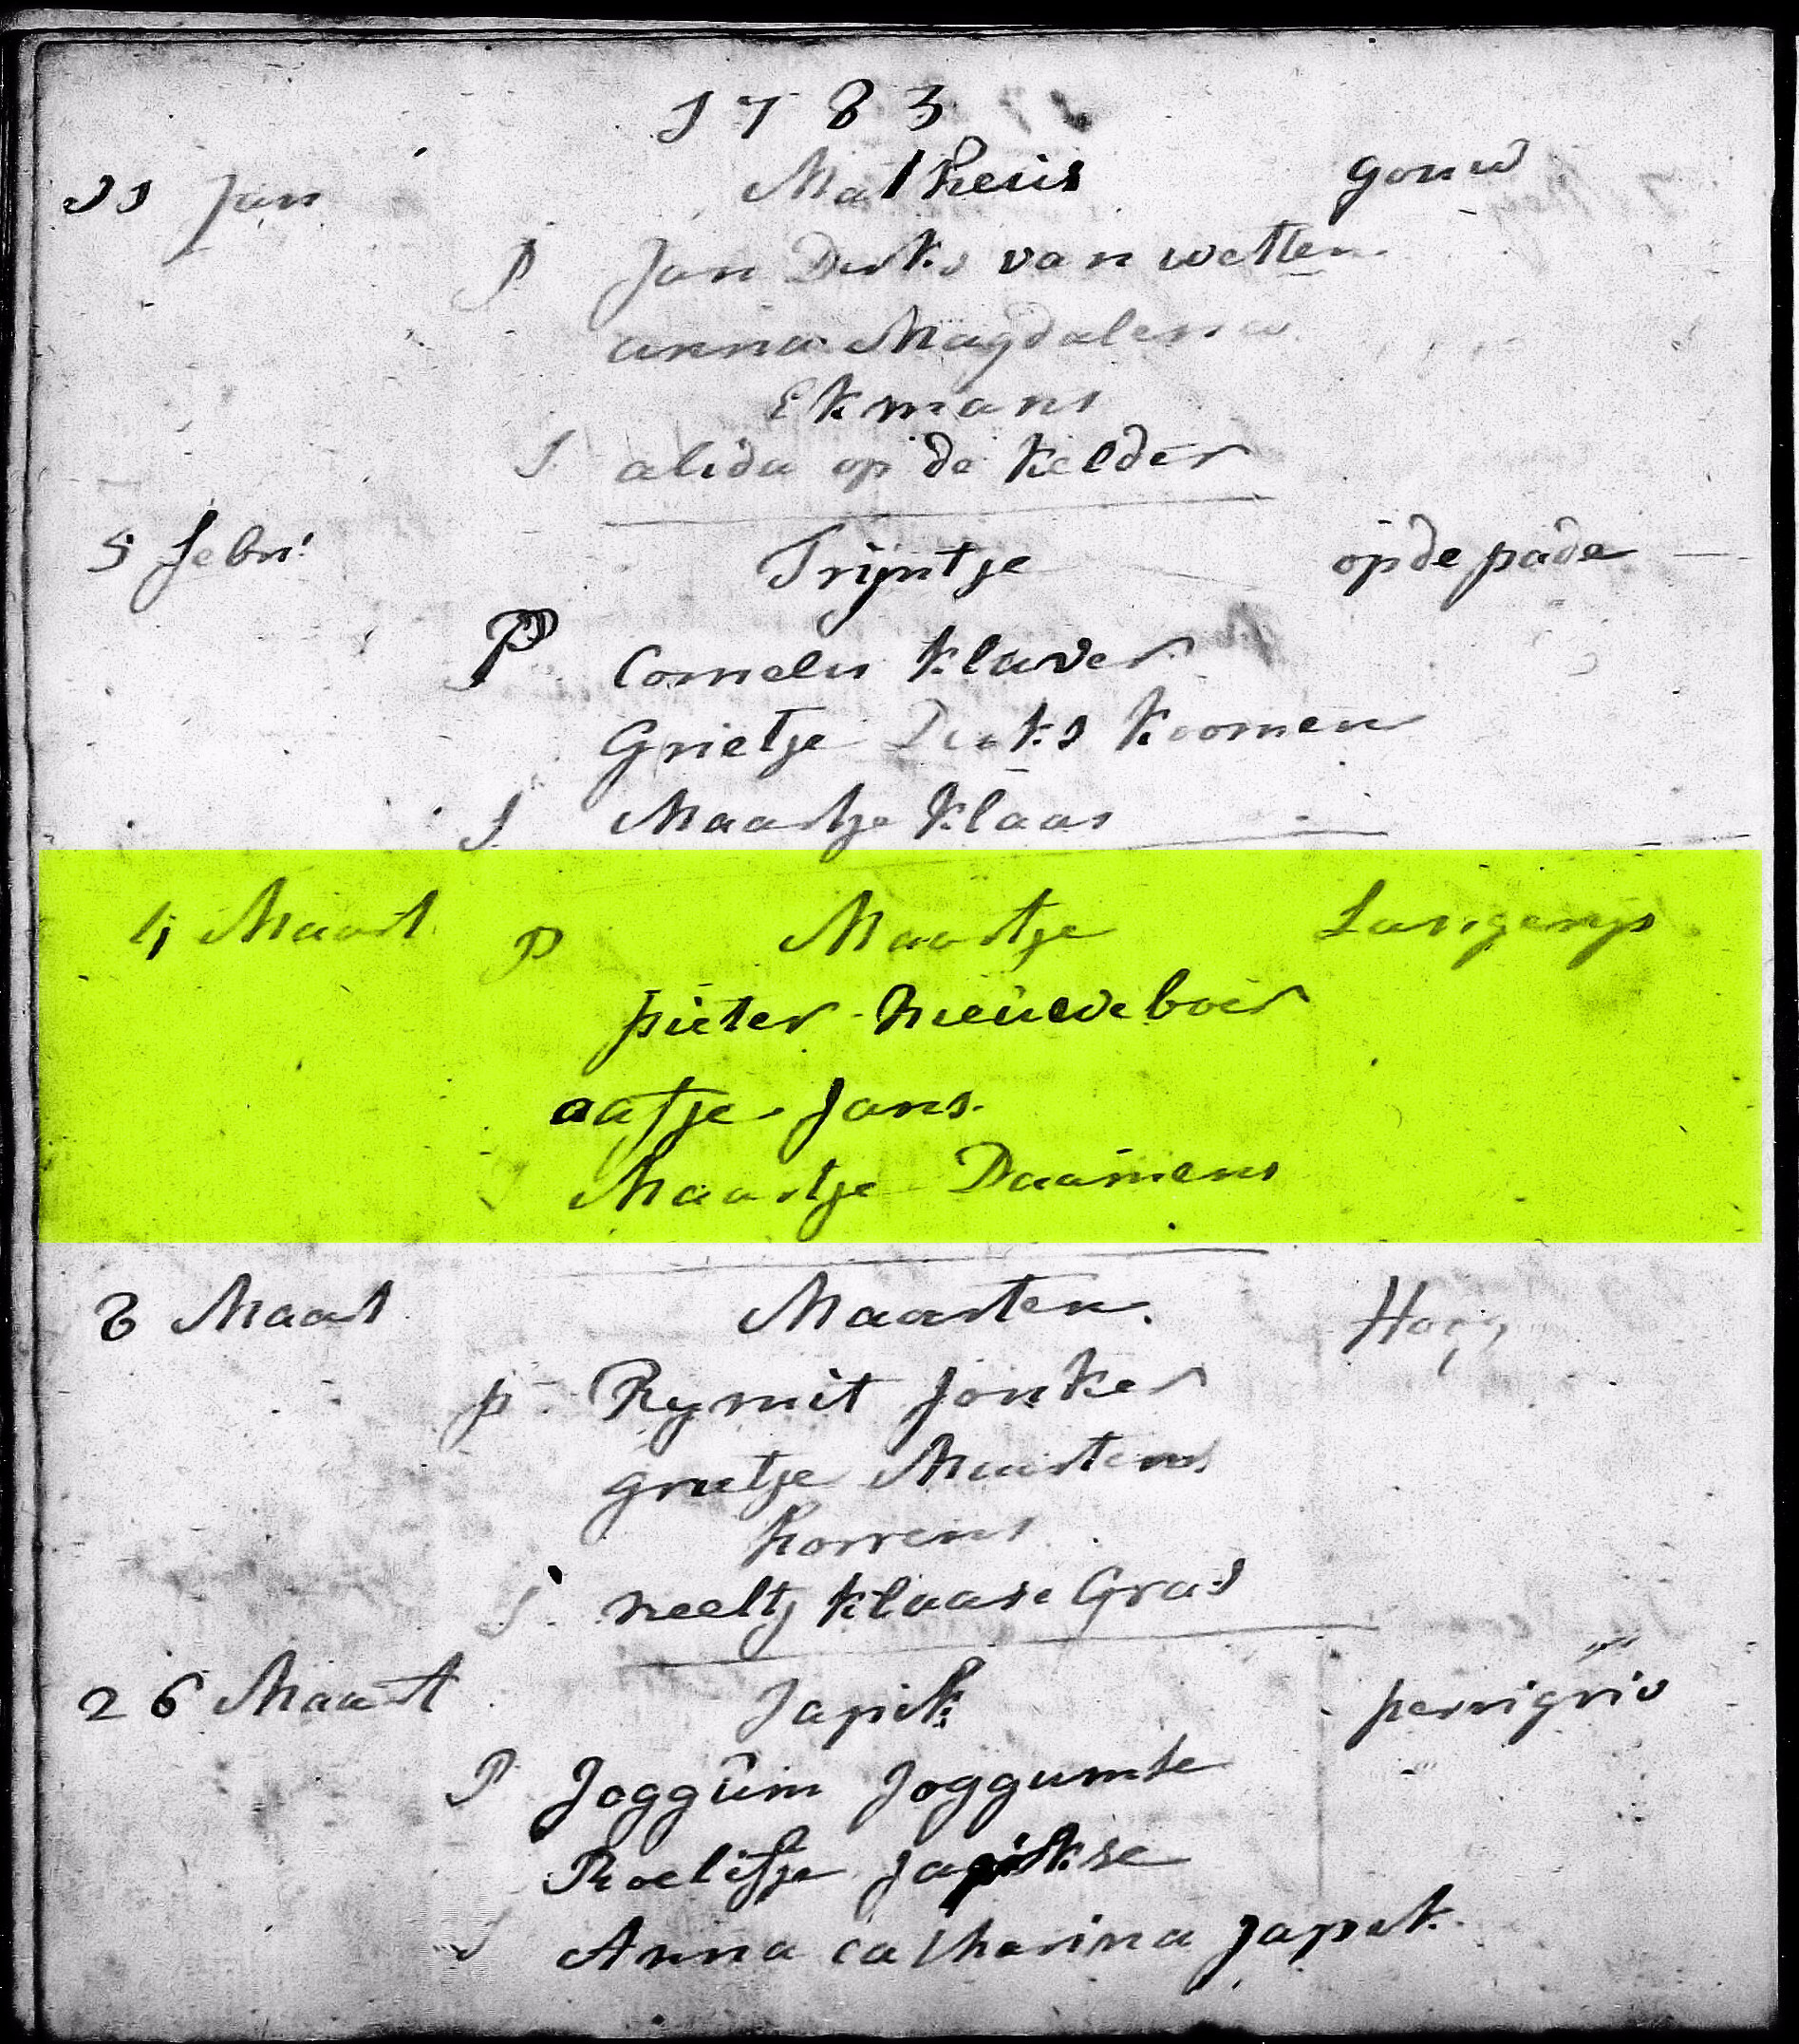 1783
31 Jan Matheus gouw
P Jan Dirks van wetten
anna Magdalena
Ekmans
S alida op de Kelder
5 febr: Trijntje op de pade
P Cornelis Klaver
Grietje Dirks Koomen
S Maartje Klaas
4 Maart P Maartje Langerijs
pieter nieuweboer
aafje Jans.
S Maartje Daamens
8 Maart Maarten.
p Rymit Jonker
grietje Maartens
Korrens
S. neeltj Klaase Gras
26 Maart Japik
P Joggum Joggumse
Roelifje Japikse
S Anna catharina Japik